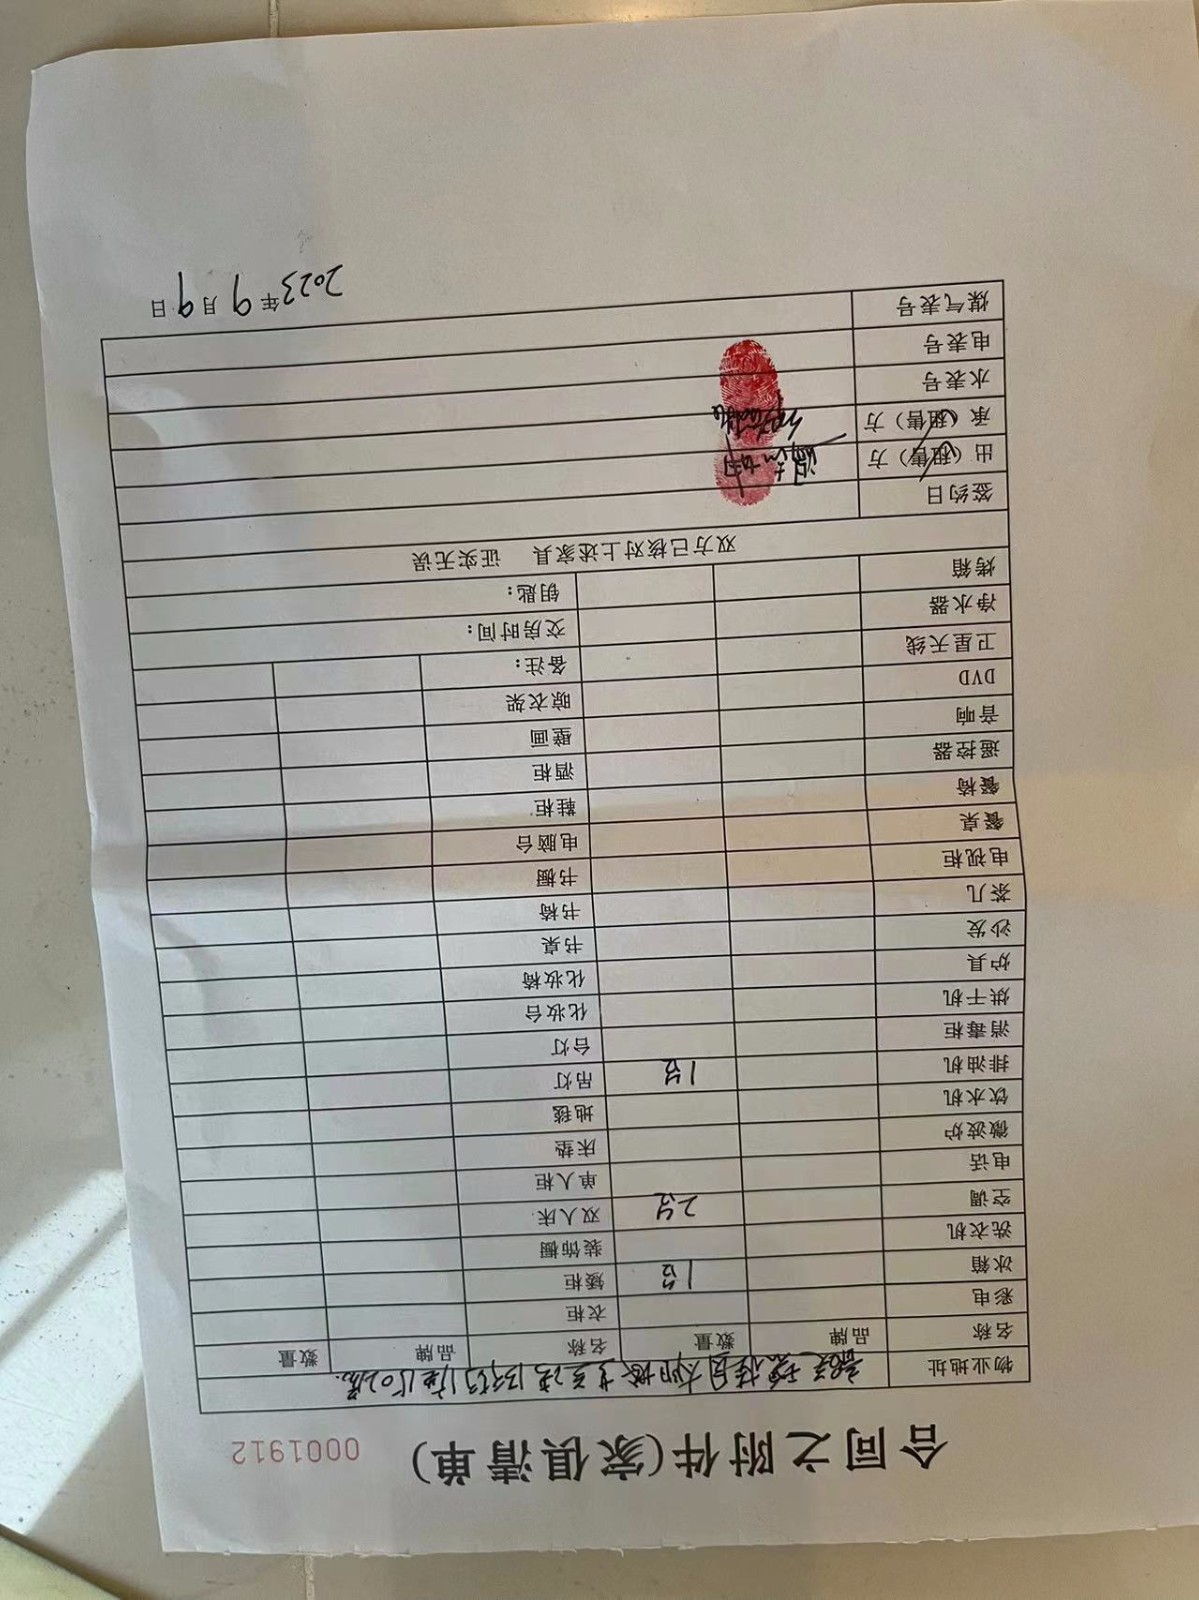 合同之附件(家俱清单) 0001912
物业地址 韶关碧桂园太阳城芝兰湾13街1座1502房.
名称 品牌 数量 名称 品牌 数量
彩电 衣柜
冰箱 1台 矮柜
洗衣机 装饰橱
空调 2台 双人床
电话 单人柜
微波炉 床垫
饮水机 地毯
排油机 1台 吊灯
消毒柜 台灯
烘干机 化妆台
炉具 化妆椅
沙发 书桌
茶几 书椅
电视柜 书橱
餐桌 电脑台
餐椅 鞋柜
遥控器 酒柜
音响 壁画
DVD 晾衣架
卫星天线 备注:
净水器 交房时间:
烤箱 钥匙:
双方已核对上述家具 证实无误
签约日
出(租售)方
承(租售)方
水表号
电表号
煤气表号
2023年9月9日